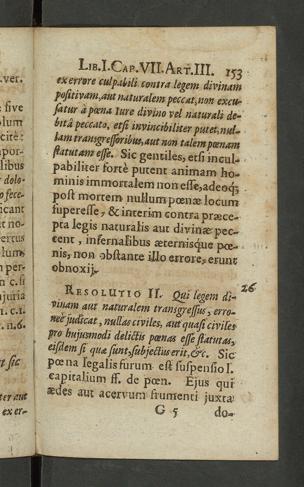 LIB. I. CAP. VII. ART. III. 153
ex errore culpabili contra legem divinam
positivam, aut naturalem peccat, non excu-
satur à pœna Iure divino vel naturali de-
bitâ peccato, etsi invincibiliter putet, nul-
lam transgressoribus, aut non talem pœnam
statutam esse. Sic gentiles, etsi incul-
pabiliter fortè putent animam ho-
minis immortalem non esse, adeoq;
post mortem nullum pœnæ locum
superesse, & interim contra præce-
pta legis naturalis aut divinæ pec-
cent, infernalibus æternisque pœ-
nis, non obstante illo errore, erunt
obnoxij.
RESOLUTIO II. Qui legem di- 26
vinam aut naturalem transgressus, erro-
neè judicat, nullas civiles, aut quasi civiles
pro hujusmodi delictis pœnas esse statutas,
eisdem si quæ sunt, subjectus erit, &c. Sic
pœna legalis furum est suspensio l.
capitalium ff. de pœn. Ejus qui
ædes aut acervum frumenti juxta
G 5 do-
ver.
sive
olum
cité:
libus
dolo-
icant
lum,
per-
n. c. si
njuria
n. c. 1.
t. n. 6.
ut sic
ter aut
ex er-